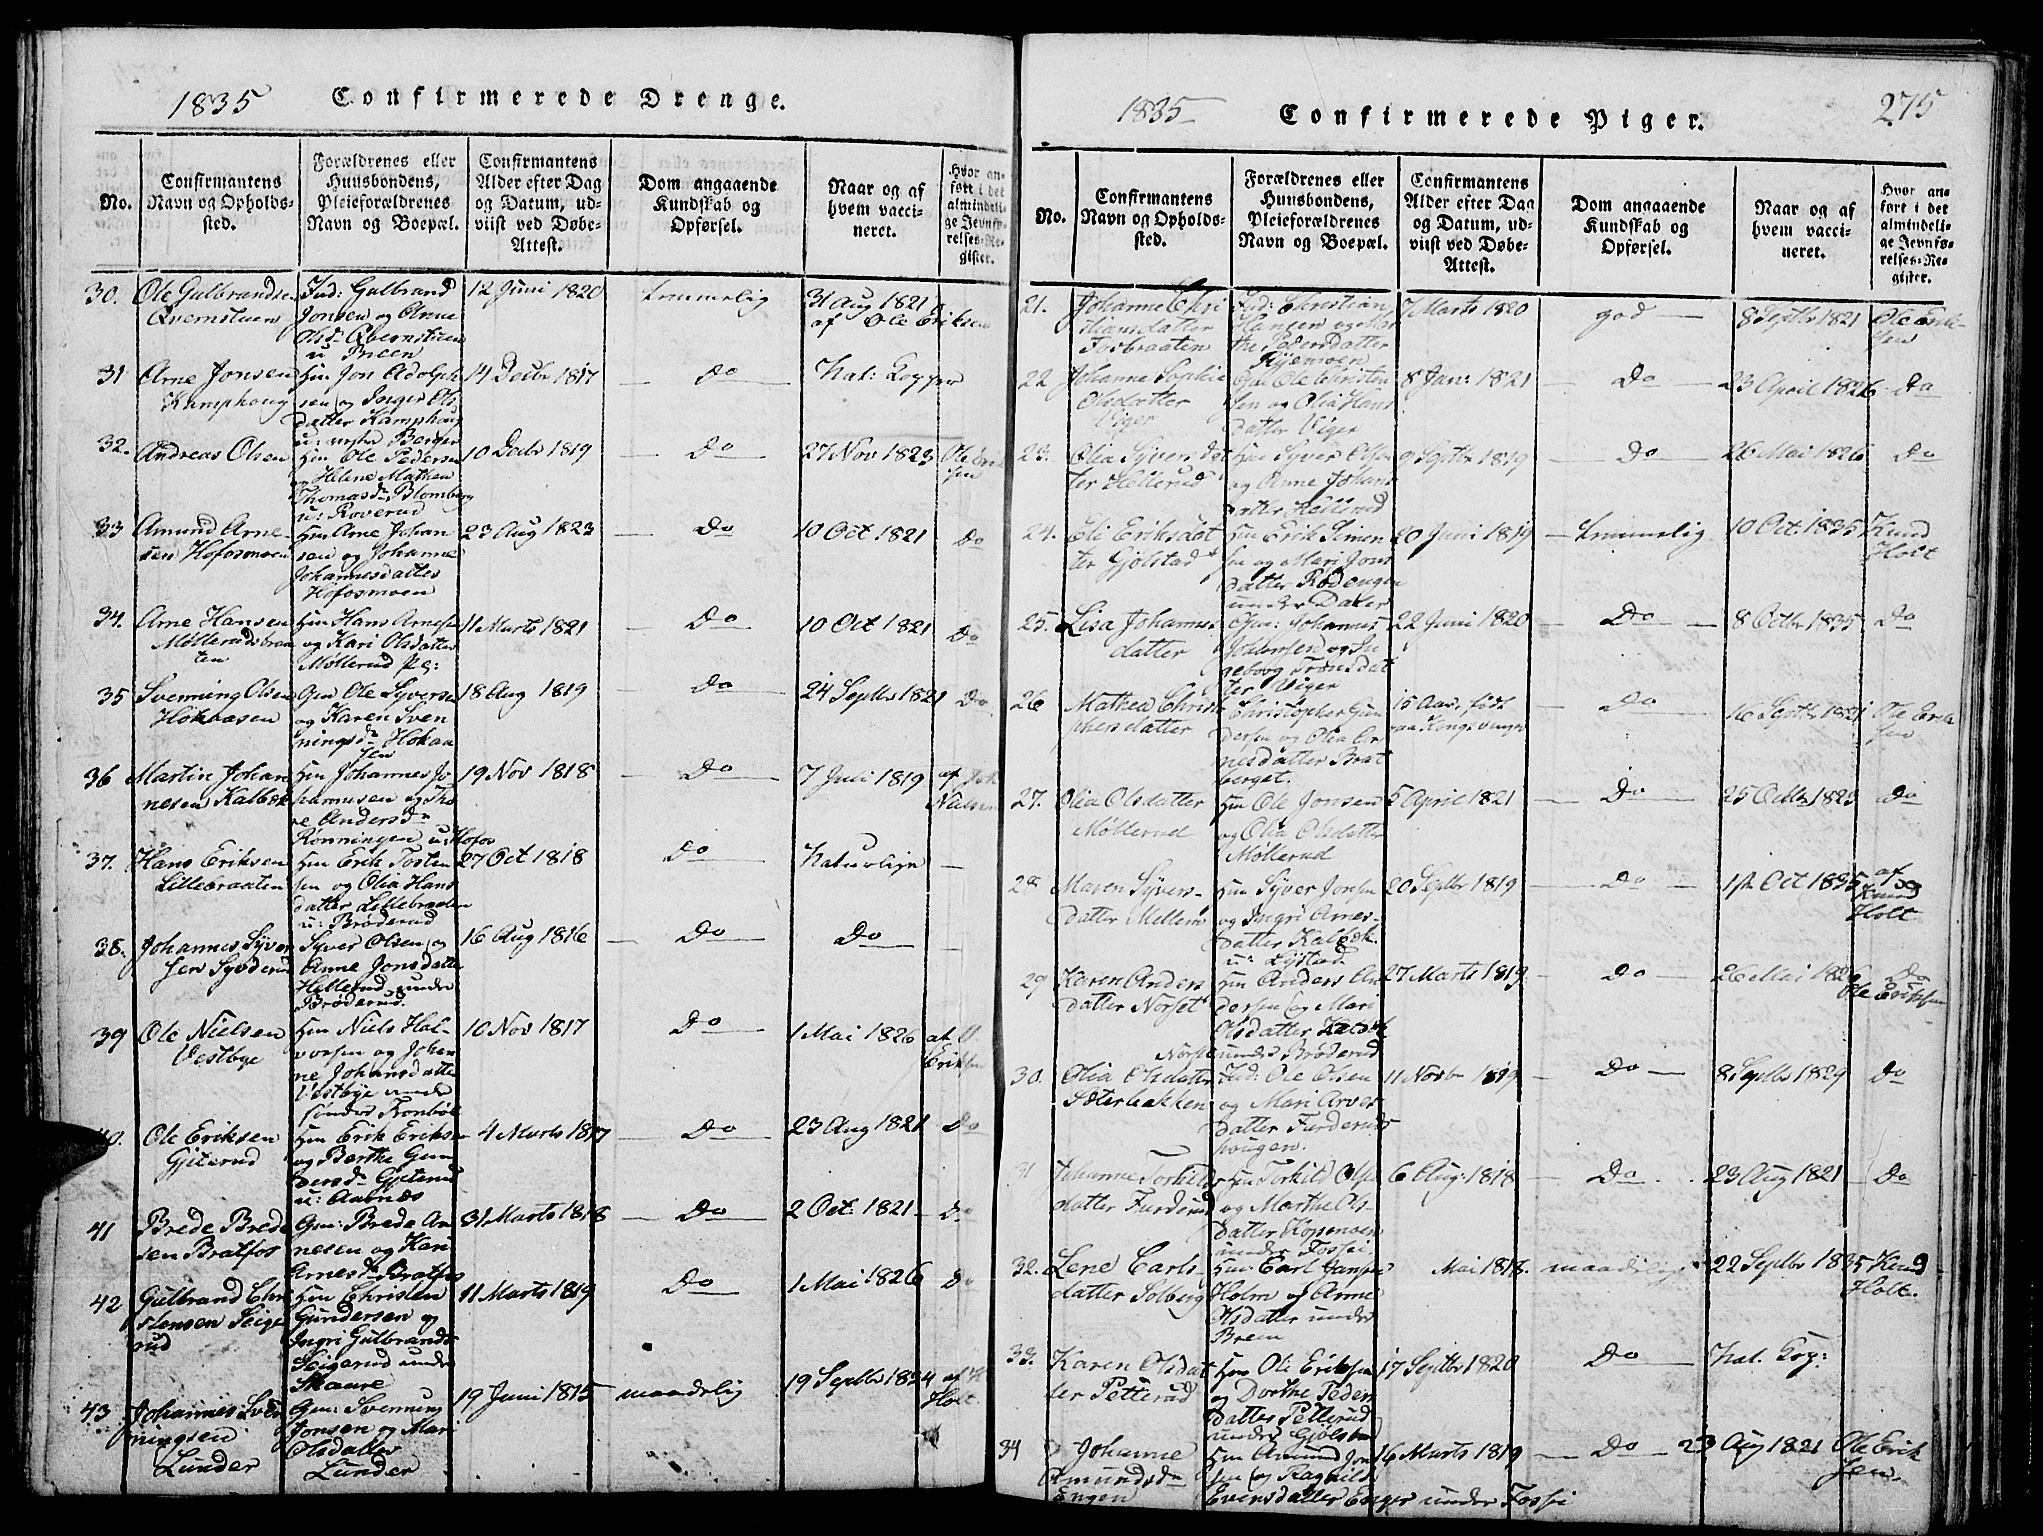 1835 Confirmerede Drenge.
No.
Confirmantens
Navn og Opholds-
sted.
Forældrenes eller
Huusbondens,
Pleieforældrenes
Navn og Boepæl.
Confirmantens
Alder efter Dag
og Datum, ud-
viist ved Døbe-
Attest.
Dom angaaende
Kundskab og
Opførsel.
Naar og af
hvem vacci-
neret.
Hvor an-
ført i det
almindeli-
ge Jevnfø-
relses-Re-
gister.
30. Ole Gulbrandsen
Qvernstuen
Ind: Gulbrand
Jonsen og Anne
Olsd
u Breen
12 Juni 1820
temmelig
31 Aug 1821
af Ole Eriksen
31 Arne Jonsen
Kamphoug
Hm Jon Adolph
sen og Inger Ols
datter Kamphoug
u:
14 Decbr 1817
Do
Nat: Kopper
32. Andreas Olsen
Hm Ole Pedersen
og Helene Mathea
Thomasd Blomberg
u: Roverud
10 Decbr 1819
Do
27 Nov 1823
Ole Erik
sen
33 Amund Arne-
sen Hofosmoen
Hm Arne Johan
sen og Johanne
Johannesdatter
Hofosmoen
23 Aug 1823
Do
10 Oct 1821
Do
34. Arne Hansen
Møllerudsbraa
ten
Hm Hans Arnesen
og Kari Olsdatter
Møllerud
11 Marts 1821
Do
10 Oct 1821
Do
35 Svenning Olsen
Hokaasen
Gm Ole Syversen
og Karen Sven
ningsd Hokaa
sen
18 Aug 1819
Do
24 Septbr 1821
Do
36 Martin Johan
nesen Kalbæk
Hm Johannes Jo
hannesen og Tho
re Andersd
Rønningen u: Hofos
19 Nov 1818
Do
7 Juli 1819
af
Nielsen
37. Hans Eriksen
Lillebraaten
Hm Erik Tosten
sen og Olia Hans
datter Lillebraaten
u: Brøderud
27 Oct 1818
Do
Naturlige
38. Johannes Syver
sen
Syver Olsen og
Anne Jonsdatter
Hellerud under
Brøderud.
16 Aug 1816
Do
Do
39 Ole Nielsen
Vestbye
Hm Niels Hal-
vorsen og Johan
ne Johansdatter
Vestbye under
søndre
10 Nov 1817
Do
1 Mai 1826
af O
Eriksen
40. Ole Eriksen
Gjiterud
Hm Erik Eriksen
og Berthe Gun
dersd Gjiterud
u: Aabnæs
4 Marts 1817
Do
23 Aug 1821
Do
41 Brede Brede
sen Bratfos
Gm: Brede Ar
nesen og Kari
Arnesd Bratfos
31 Marts 1818
Do
2 Oct: 1821
Do
42 Gulbrand Chri
stensen Seige
rud
Hm Christen
Gundersen og
Ingri Gulbrandsd
Seigerud under
Skaare
11 Marts 1819
Do
1 Mai 1826
Do
43 Johannes Sven
ningsen
Lunder
Gm: Svenning
Jonsen og Mari
Olsdatter
Lunder
19 Juni 1815
maadelig
19 Septbr 1834
af K
Holt
1835 Confirmerede Piger. 275
No.
Confirmantens
Navn og Opholds-
sted.
Forældrenes eller
Huusbondens,
Pleieforældrenes
Navn og Boepæl.
Confirmantens
Alder efter Dag
og Datum, ud-
viist ved Døbe-
Attest.
Dom angaaende
Kundskab og
Opførsel.
Naar og af
hvem vacci-
neret.
Hvor an-
ført i det
almindeli-
ge Jevnfø-
relses-Re-
gister.
21. Johanne Chri
stiansdatter
Fosbraaten
Ind: Christian
Hansen og Mar
the Pedersdatter
Ryemoen
7 Marts 1820
god
8 Septbr 1821
Ole Erik
sen
22 Johanne Sophie
Olsdatter
Viger
Gm Ole Christen
sen og Olia Hans
datter Viger
8 Jan: 1821
Do
23 April 1826
Do
23. Olia Syversdat
ter Hellerud
Hm Syver Olsen
og Anne Johans
datter Hellerud
9 Septbr 1819
Do
26 Mai 1826
Do
24. Eli Eriksdat
ter Gjølstad
Hm Erik Simen
sen og Mari Jons
datter Rødengen
under
20 Juni 1819
temmelig
10 Oct 1835
Knud
Holt
25. Lisa Johannes
datter
Gm: Johannes
og In
geborg Trønsdat
ter Viger
22 Juni 1820
Do
8 Octbr 1835
Do
26 Mathea Christo
phersdatter
Christopher Gun
dersen og Olia Ar
nesdatter Brat
berget.
15 Aar, født
paa Kongsvinger
Do
16 Septbr 1821
Ole Erik
sen
27. Olia Olsdatter
Møllerud
Hm Ole Jonsen
og Olia Olsdatter
Møllerud
5 April 1821
Do
25 Octbr 1823
Do
28 Maren Syvers-
datter Mellem
Hm Syver Jonsen
og Ingri Arnes-
datter Kalbæk
u: Lystad
20 Septbr 1819
Do
Oct 1835
af
Knud
Holt
29 Karen Anders
datter Norset
Hm Anders An
dersen og Mari
Olsdatter
Norset under Brøderud
27 Marts 1819
Do
26 Mai 1826
Do
Ole Eriksen
30. Olia Olsdatter
Sæterbakken
Ind: Ole Olsen
og Mari Arnes
datter Furderuds
hougen.
11 Novbr 1819
Do
8 Septbr 1829
Do
31 Johanne Torkilds
datter Furderud
Hm Torkild Olsen
og Marthe Ols
datter
under Fossei
6 Aug: 1818
Do
23 Aug 1821
Do
32. Lene Carls
datter Solberg
Hm: Carl Jansen
Holm og Anne
Olsdatter under
Breen
Mai 1818.
maadelig
22 Septbr 1835
Knud
Holt.
33. Karen Olsdat
ter Petterud
Hm Ole Eriksen
og Dorthe Peders
datter Petterud
under Gjølstad
17 Septbr 1820
Do
Nat. Kop:
34 Johanne
Amundsd
Engen
Hm Amund Jon
sen og Ragnild
Evensdatter Enger under Fossei
16 Marts 1819
Do
23 Aug 1821
Ole Erik
sen.